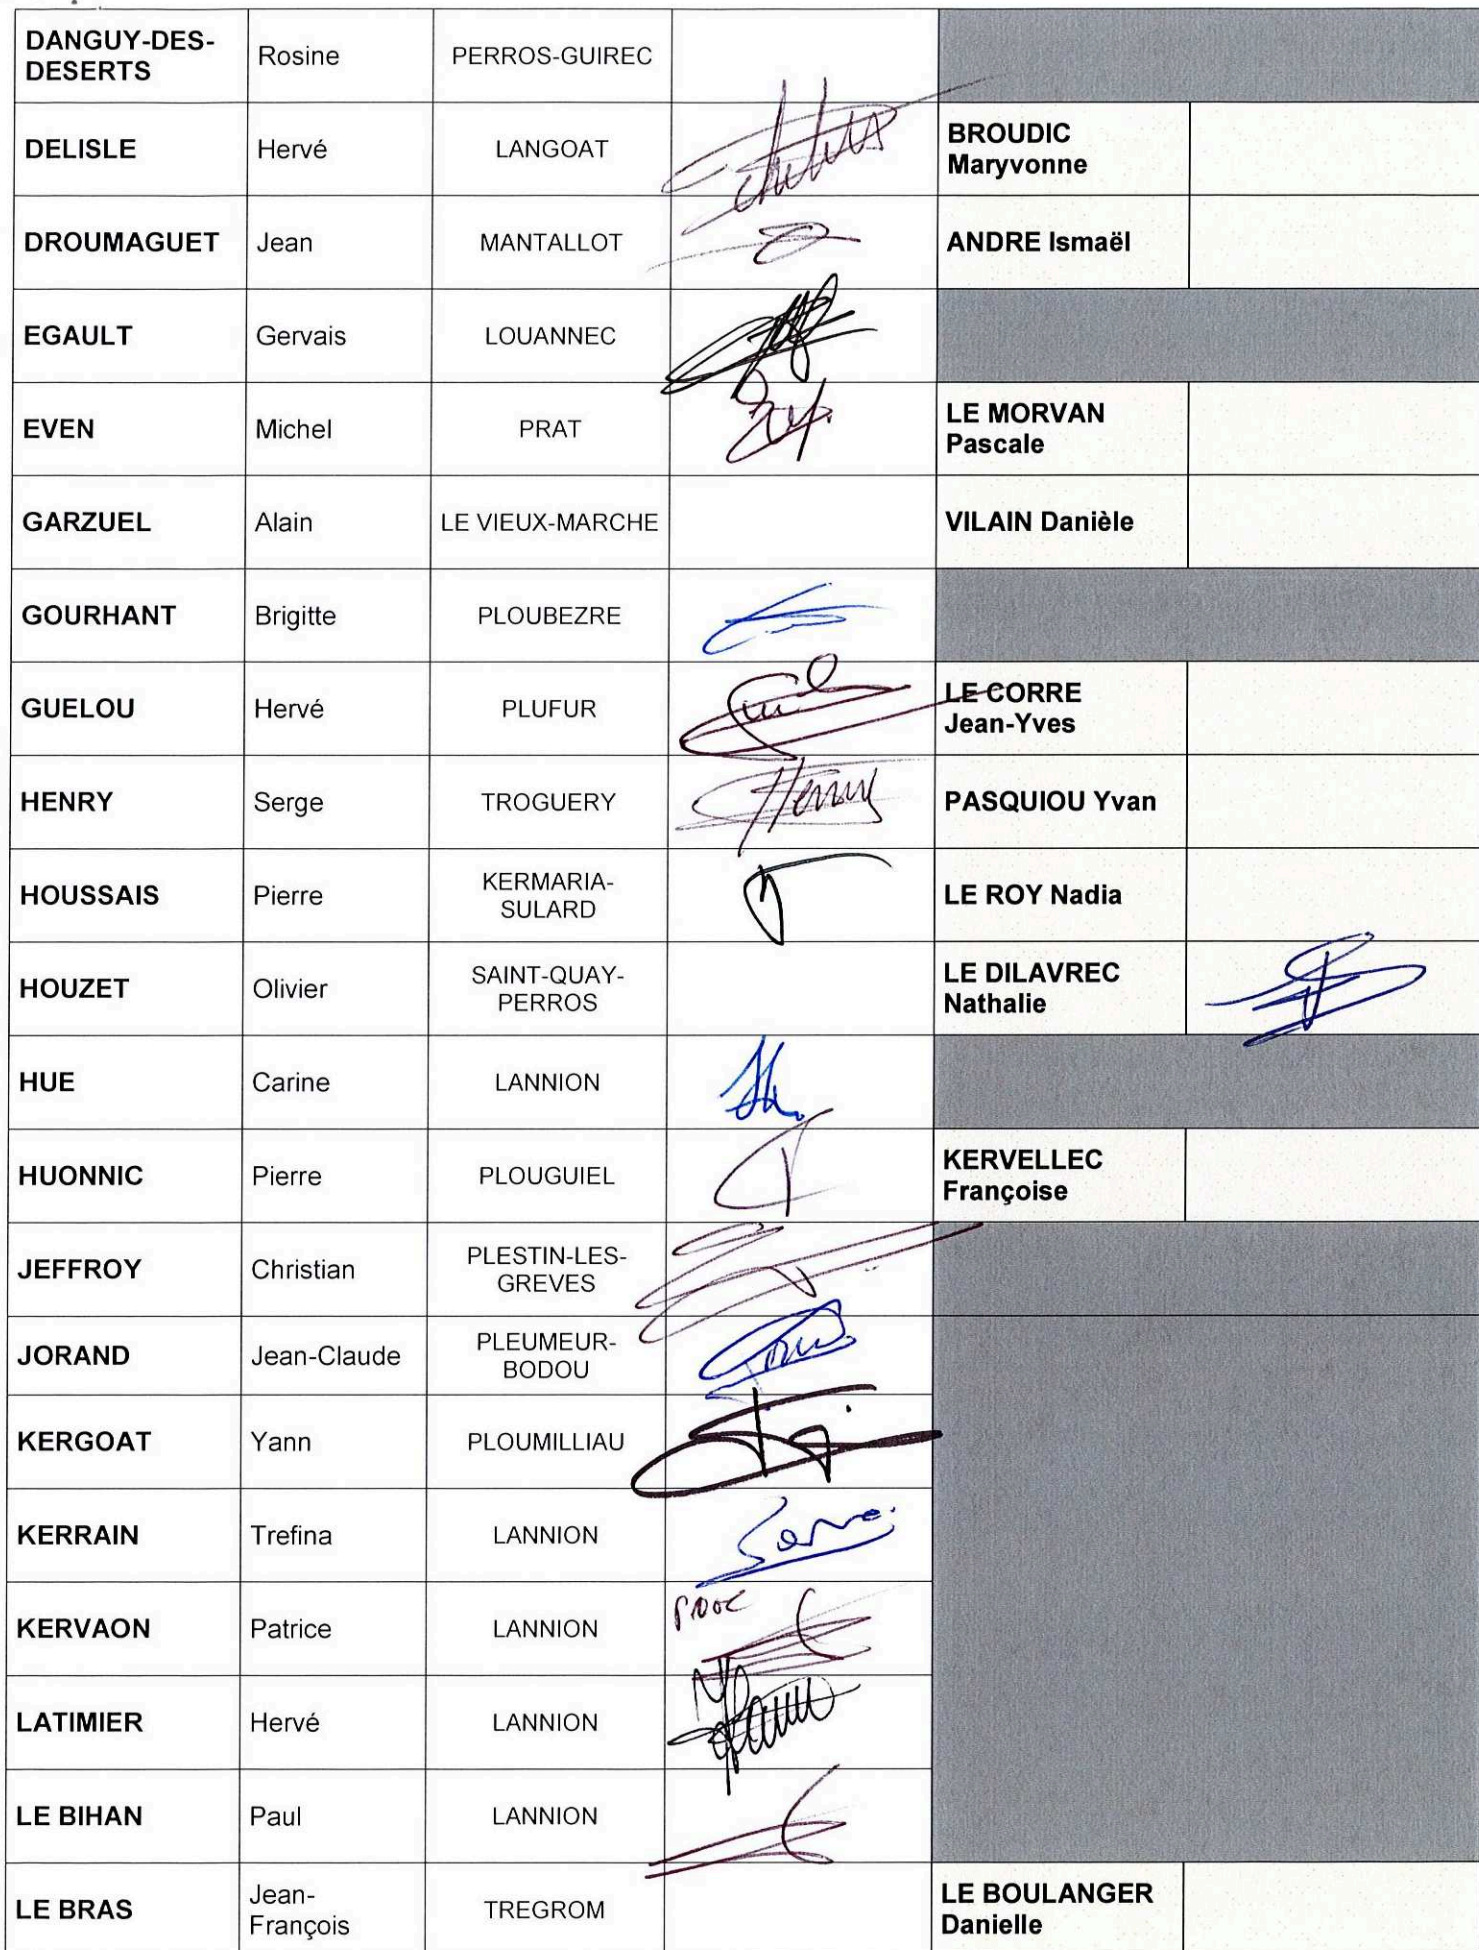 DANGUY-DES-
DESERTS
Rosine
PERROS-GUIREC
DELISLE
Hervé
LANGOAT
BROUDIC
Maryvonne
DROUMAGUET
Jean
MANTALLOT
ANDRE Ismaël
EGAULT
Gervais
LOUANNEC
EVEN
Michel
PRAT
LE MORVAN
Pascale
GARZUEL
Alain
LE VIEUX-MARCHE
VILAIN Danièle
GOURHANT
Brigitte
PLOUBEZRE
GUELOU
Hervé
PLUFUR
LE CORRE
Jean-Yves
HENRY
Serge
TROGUERY
Henry
PASQUIOU Yvan
HOUSSAIS
Pierre
KERMARIA-
SULARD
LE ROY Nadia
HOUZET
Olivier
SAINT-QUAY-
PERROS
LE DILAVREC
Nathalie
HUE
Carine
LANNION
HUONNIC
Pierre
PLOUGUIEL
KERVELLEC
Françoise
JEFFROY
Christian
PLESTIN-LES-
GREVES
JORAND
Jean-Claude
PLEUMEUR-
BODOU
KERGOAT
Yann
PLOUMILLIAU
KERRAIN
Trefina
LANNION
KERVAON
Patrice
LANNION
PROC
LATIMIER
Hervé
LANNION
LE BIHAN
Paul
LANNION
LE BRAS
Jean-
François
TREGROM
LE BOULANGER
Danielle